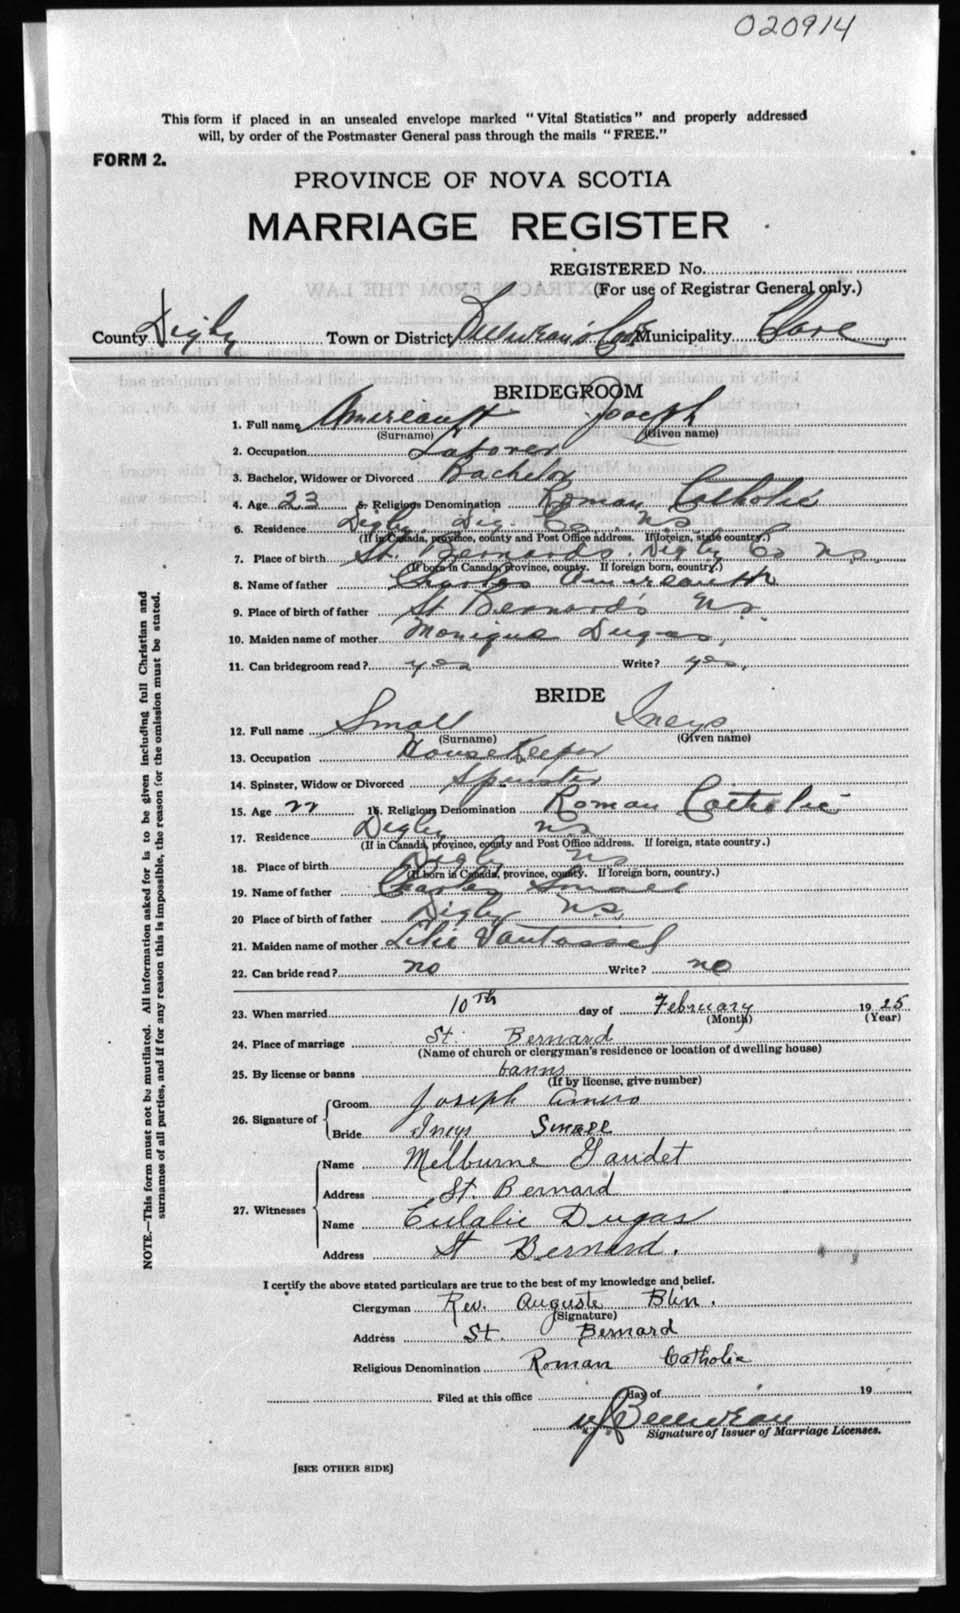 020914
This form if placed in an unsealed envelope marked "Vital Statistics" and properly addressed
will, by order of the Postmaster General pass through the mails "FREE."
FORM 2.
PROVINCE OF NOVA SCOTIA
MARRIAGE REGISTER
REGISTERED No.
(For use of Registrar General only.)
County Digby Town or District Belliveau's Cove Municipality Clare
BRIDEGROOM
1. Full name Amireault Joseph
(Surname) (Given name)
2. Occupation Laborer
3. Bachelor, Widower or Divorced Bachelor
4. Age 23 5. Religious Denomination Roman Catholic
6. Residence Digby, Dig. Co, N S
(If in Canada, province, county and Post Office address. If foreign, state country.)
7. Place of birth St. Bernards, Digby Co N S.
(If born in Canada, province, county. If foreign born, country.)
8. Name of father Charles Amireault
9. Place of birth of father St Bernard's N S.
10. Maiden name of mother Monique Dugas,
11. Can bridegroom read? yes Write? yes,
BRIDE
12. Full name Small Ineys
(Surname) (Given name)
13. Occupation HouseKeeper
14. Spinster, Widow or Divorced Spinster
15. Age 22 16. Religious Denomination Roman Catholic
17. Residence Digby N S
(If in Canada, province, county and Post Office address. If foreign, state country.)
18. Place of birth Digby N S
(If born in Canada, province, county. If foreign born, country.)
19. Name of father Charley Small
20 Place of birth of father Digby N.S.
21. Maiden name of mother Lilie Vantassel
22. Can bride read? no Write? no
23. When married 10th day of February 1925
(Month) (Year)
24. Place of marriage St. Bernard
(Name of church or clergyman's residence or location of dwelling house)
25. By license or banns banns
(If by license, give number)
26. Signature of Groom Joseph Amero
Bride Ineys Small
27. Witnesses Name Melburne Gaudet
Address St. Bernard
Name Eulalie Dugas
Address St Bernard.
I certify the above stated particulars are true to the best of my knowledge and belief.
Clergyman Rev. Auguste Blin.
(Signature)
Address St. Bernard
Religious Denomination Roman Catholic
Filed at this office day of 19
Belliveau
Signature of Issuer of Marriage Licenses.
[SEE OTHER SIDE]
NOTE.—This form must not be mutilated. All information asked for is to be given including full Christian and
surnames of all parties, and if for any reason this is impossible, the reason for the omission must be stated.